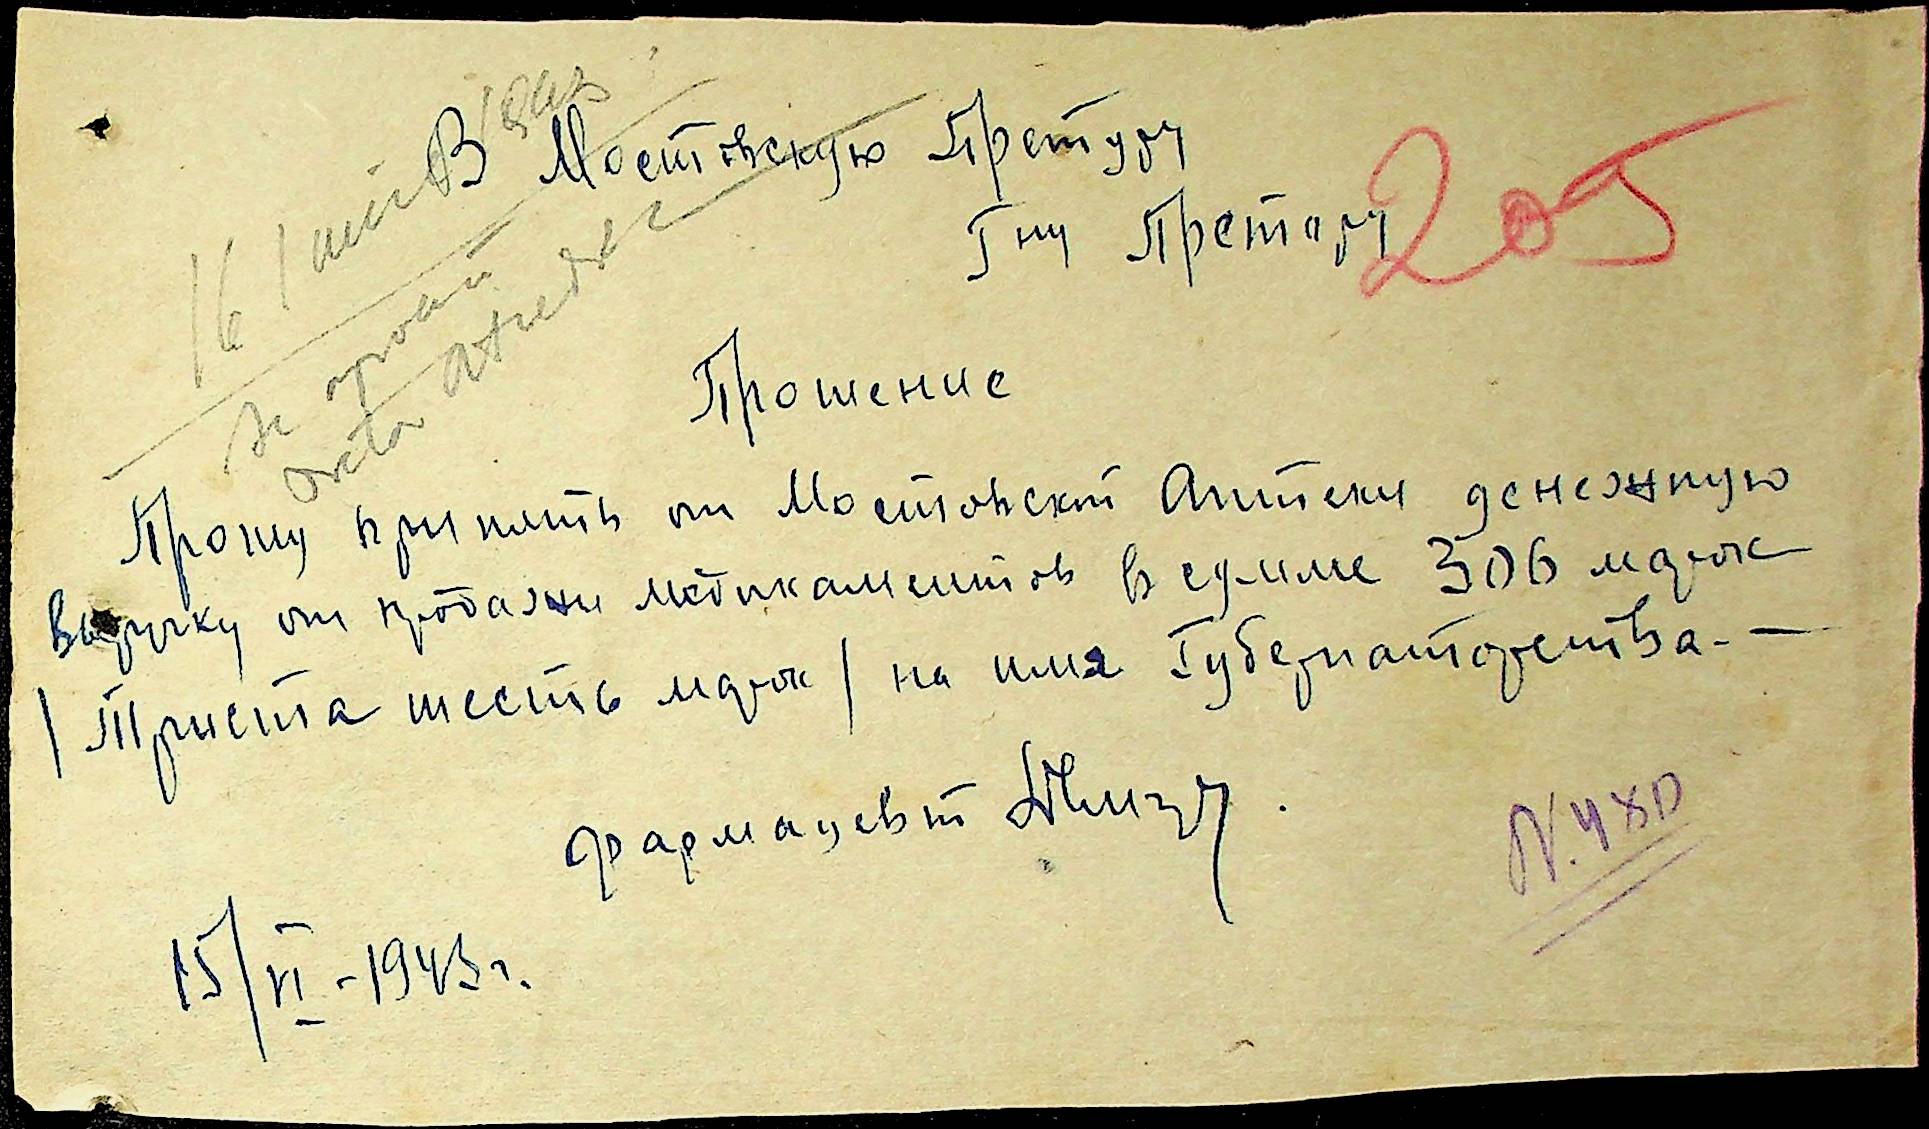 В Мостовскую Претуру
Гну Претору
205
Прошение
Прошу принять от Мостовской Аптеки денежную
выручку от продажи медикаментов в сумме 306 марок
/ Триста шесть марок / на имя Губернаторства. —
фармацевт
N. 480
15/VI - 1943 г.
16 Iunie 1943